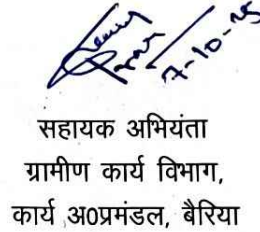 7-10-25
सहायक अभियंता
ग्रामीण कार्य विभाग,
कार्य अ0प्रमंडल, बैरिया